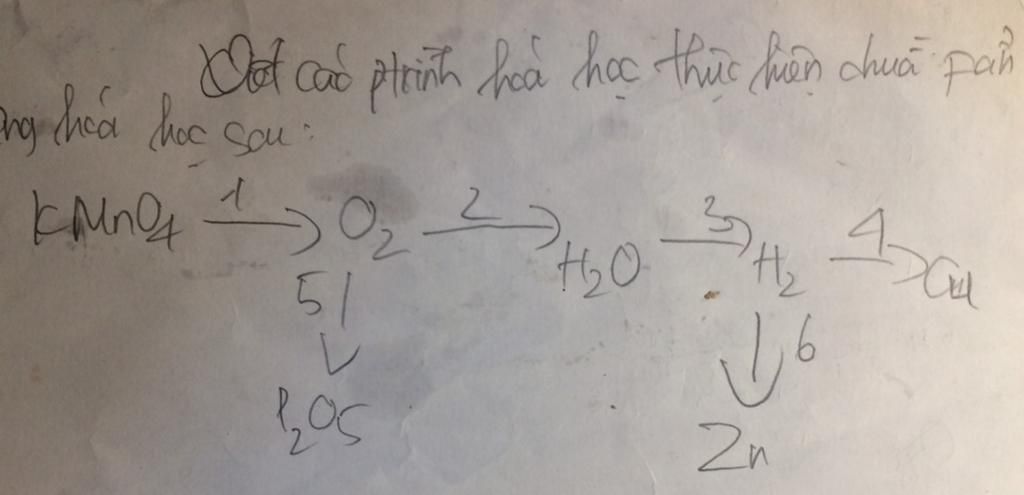 Viết các ptrình hoá học thực hiện chuỗi pản
ứng hoá học sau:
KMnO4 1→ O2 2→ H2O 3→ H2 4→ Cu
5↓ ↓6
P2O5 Zn